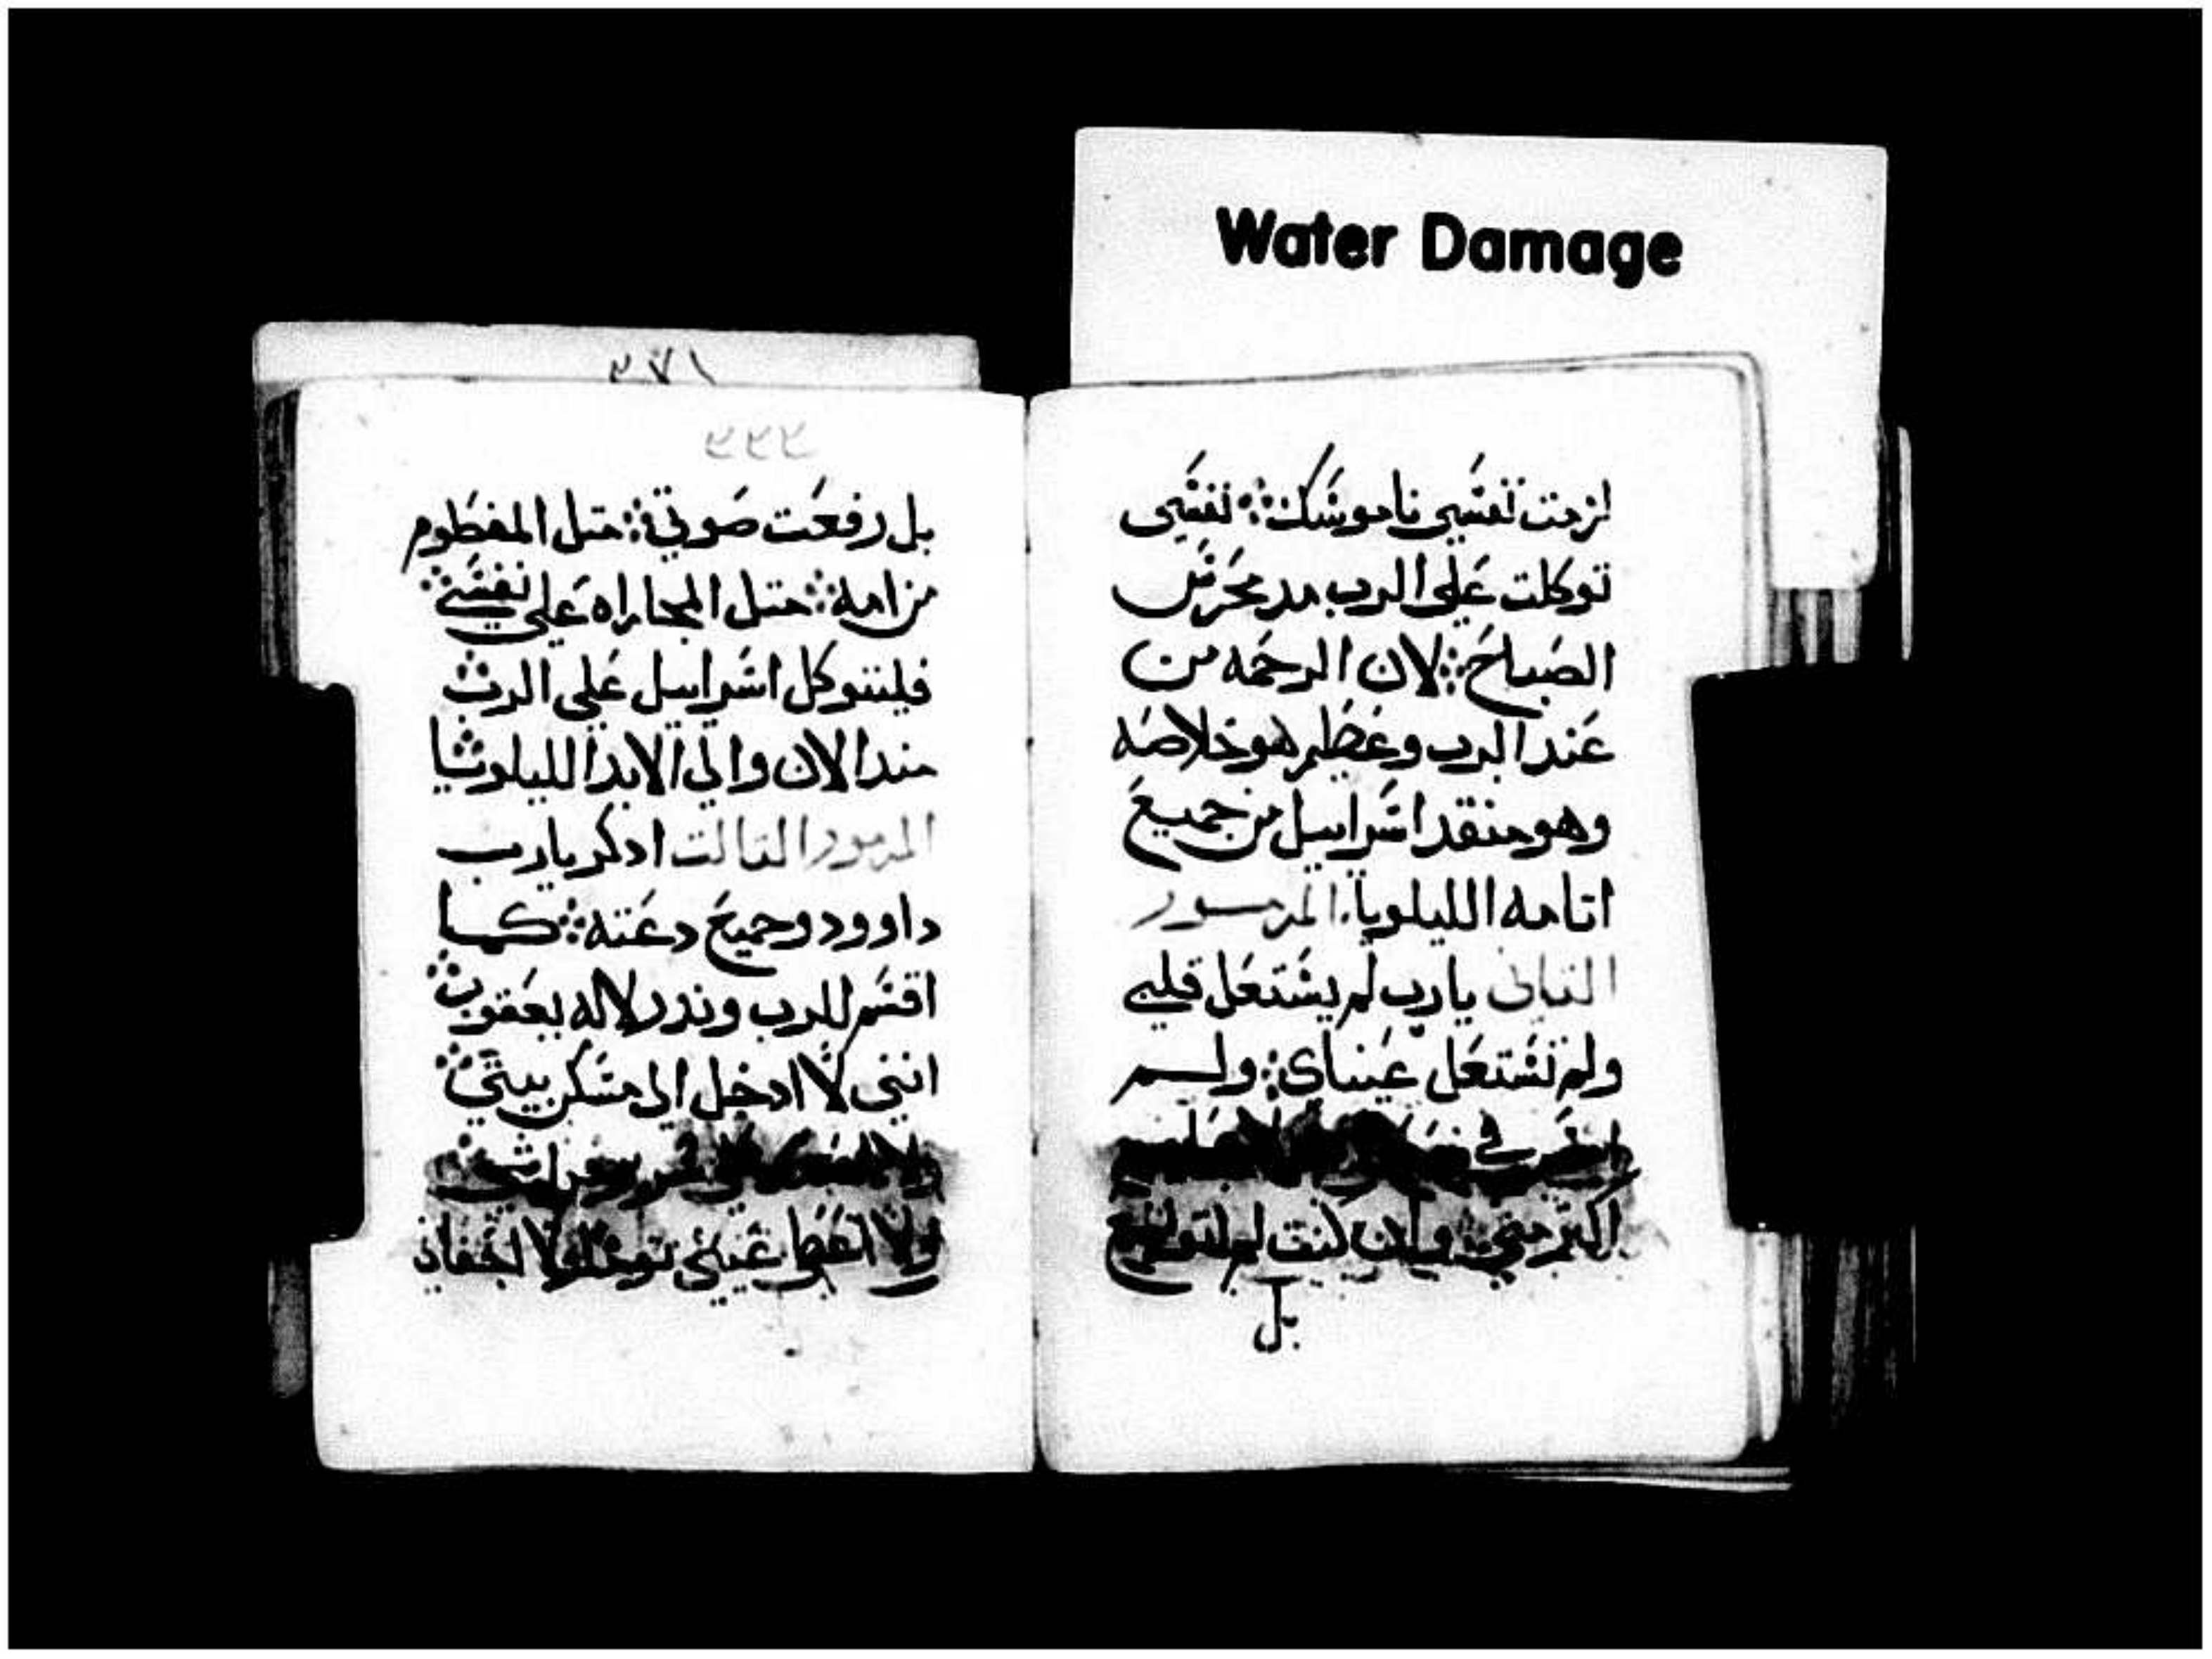 Water Damage
لزمت نفسي ناموسك ⁘ نفسي
توكلت على الرب مد محرس
الصباح ⁘ لان الرحمه من
عند الرب وعظيم هو خلاصه
وهو منقد اسراييل من جميع
اتامه الليلويا. المزمور
التاني يارب لم يشتعل قلبي
ولم تشتعل عيناي ⁘ ولم
في
اكتر مني ⁘ وان كنت لم اتواضع
بل
٢٧١
٢٢٢
بل رفعت صوتي ⁘ متل المفطوم
من امه ⁘ متل المجاراه على نفسي ⁘
فليتوكل اسراييل على الرب ⁘
مند الان والى الابد الليلويا
المزمور التالت ادكر يارب
داوود وجميع دعته ⁘ كما
اقسم للرب وندر لاله يعقوب ⁘
انني لا ادخل الى مسكن بيتي ⁘
ولا
ولا اعطى عيني نوم ولا اجفاني